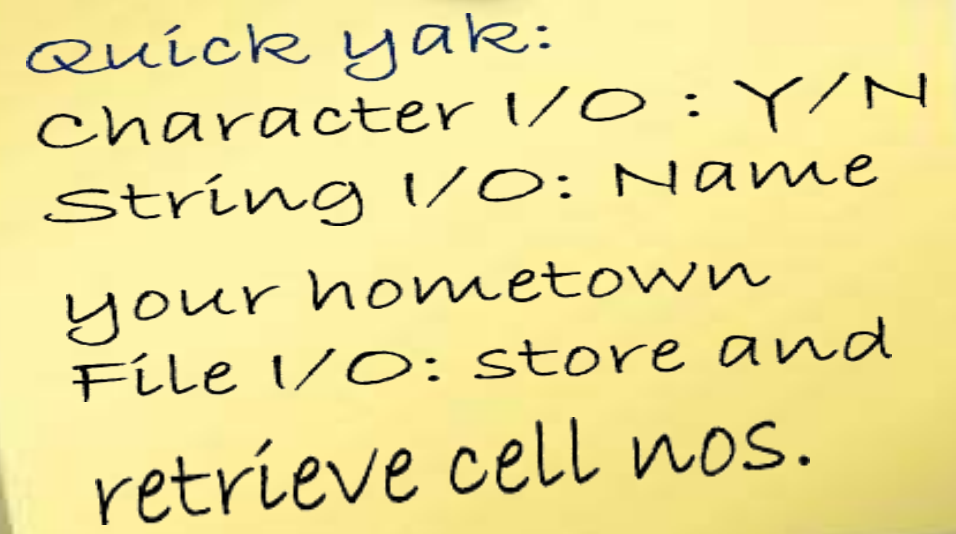 Quick yak:
Character I/O : Y/N
String I/O: Name
your hometown
File I/O: store and
retrieve cell nos.